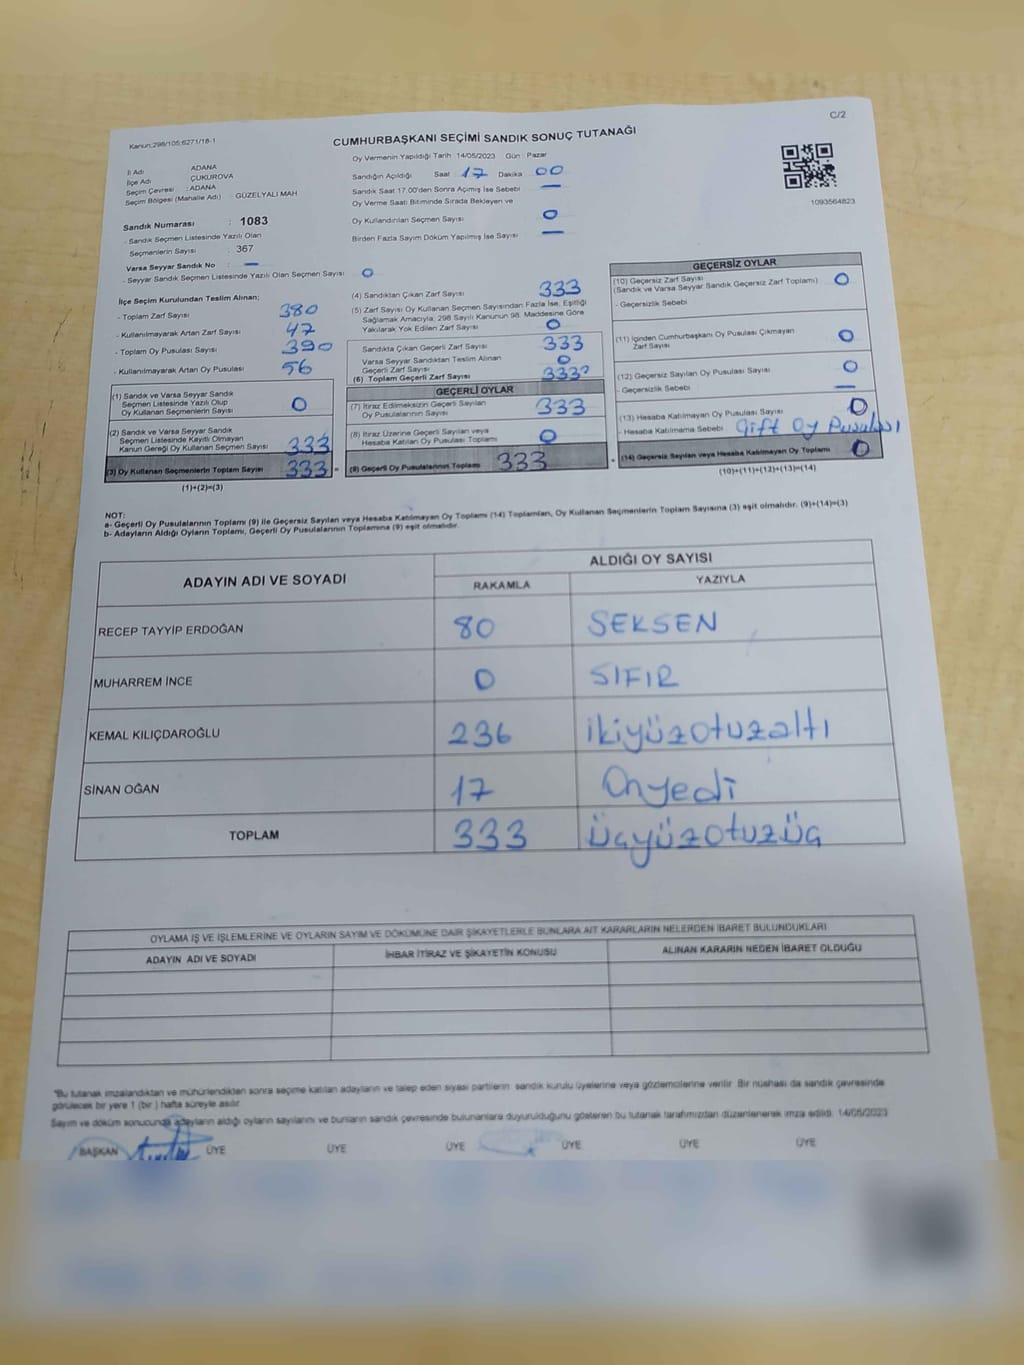 C/2
Kanun;298/105;6271/18-1
CUMHURBAŞKANI SEÇİMİ SANDIK SONUÇ TUTANAĞI
Oy Vermenin Yapıldığı Tarih 14/05/2023 Gün : Pazar
İl Adı ADANA
İlçe Adı ÇUKUROVA
Seçim Çevresi : ADANA
Seçim Bölgesi (Mahalle Adı) : GÜZELYALI MAH
Sandık Numarası : 1083
- Sandık Seçmen Listesinde Yazılı Olan
Seçmenlerin Sayısı : 367
Varsa Seyyar Sandık No : —
- Seyyar Sandık Seçmen Listesinde Yazılı Olan Seçmen Sayısı : 0
Sandığın Açıldığı Saat 17 Dakika 00
Sandık Saat 17.00'den Sonra Açımış İse Sebebi —
Oy Verme Saati Bitiminde Sırada Bekleyen ve
Oy Kullandırılan Seçmen Sayısı 0
Birden Fazla Sayım Döküm Yapılmış İse Sayısı —
1093564823
İlçe Seçim Kurulundan Teslim Alınan;
- Toplam Zarf Sayısı 380
- Kullanılmayarak Artan Zarf Sayısı 47
- Toplam Oy Pusulası Sayısı 390
- Kullanılmayarak Artan Oy Pusulası 56
(1) Sandık ve Varsa Seyyar Sandık
Seçmen Listesinde Yazılı Olup
Oy Kullanan Seçmenlerin Sayısı 0
(2) Sandık ve Varsa Seyyar Sandık
Seçmen Listesinde Kayıtlı Olmayan
Kanun Gereği Oy Kullanan Seçmen Sayısı 333
(3) Oy Kullanan Seçmenlerin Toplam Sayısı 333 =
(1)+(2)=(3)
(4) Sandıktan Çıkan Zarf Sayısı 333
(5) Zarf Sayısı Oy Kullanan Seçmen Sayısından Fazla İse, Eşitliği
Sağlamak Amacıyla; 298 Sayılı Kanunun 98. Maddesine Göre
Yakılarak Yok Edilen Zarf Sayısı 0
Sandıkta Çıkan Geçerli Zarf Sayısı 333
Varsa Seyyar Sandıktan Teslim Alınan
Geçerli Zarf Sayısı 0
(6) Toplam Geçerli Zarf Sayısı 333
GEÇERLİ OYLAR
(7) İtiraz Edilmeksizin Geçerli Sayılan
Oy Pusulalarının Sayısı 333
(8) İtiraz Üzerine Geçerli Sayılan veya
Hesaba Katılan Oy Pusulası Toplamı 0
(9) Geçerli Oy Pusulalarının Toplamı 333 +
GEÇERSİZ OYLAR
(10) Geçersiz Zarf Sayısı
(Sandık ve Varsa Seyyar Sandık Geçersiz Zarf Toplamı) 0
- Geçersizlik Sebebi
(11) İçinden Cumhurbaşkanı Oy Pusulası Çıkmayan
Zarf Sayısı 0
(12) Geçersiz Sayılan Oy Pusulası Sayısı 0
- Geçersizlik Sebebi —
(13) Hesaba Katılmayan Oy Pusulası Sayısı 0
- Hesaba Katılmama Sebebi Çift Oy Pusulası
(14) Geçersiz Sayılan veya Hesaba Katılmayan Oy Toplamı 0
(10)+(11)+(12)+(13)=(14)
NOT:
a- Geçerli Oy Pusulalarının Toplamı (9) ile Geçersiz Sayılan veya Hesaba Katılmayan Oy Toplamı (14) Toplamları, Oy Kullanan Seçmenlerin Toplam Sayısına (3) eşit olmalıdır. (9)+(14)=(3)
b- Adayların Aldığı Oyların Toplamı, Geçerli Oy Pusulalarının Toplamına (9) eşit olmalıdır.
ADAYIN ADI VE SOYADI ALDIĞI OY SAYISI
RAKAMLA YAZIYLA
RECEP TAYYİP ERDOĞAN 80 SEKSEN
MUHARREM İNCE 0 SIFIR
KEMAL KILIÇDAROĞLU 236 ikiyüzotuzaltı
SİNAN OĞAN 17 Onyedi
TOPLAM 333 üçyüzotuzüç
OYLAMA İŞ VE İŞLEMLERİNE VE OYLARIN SAYIM VE DÖKÜMÜNE DAİR ŞİKAYETLERLE BUNLARA AİT KARARLARIN NELERDEN İBARET BULUNDUKLARI
ADAYIN ADI VE SOYADI İHBAR İTİRAZ VE ŞİKAYETİN KONUSU ALINAN KARARIN NEDEN İBARET OLDUĞU
*Bu tutanak imzalandıktan ve mühürlendikten sonra seçime katılan adayların ve talep eden siyasi partilerin sandık kurulu üyelerine veya gözlemcilerine verilir. Bir nüshası da sandık çevresinde
görülecek bir yere 1 (bir ) hafta süreyle asılır.
Sayım ve döküm sonucunda adayların aldığı oyların sayılarını ve bunların sandık çevresinde bulunanlara duyurulduğunu gösteren bu tutanak tarafımızdan düzenlenerek imza edildi. 14/05/2023
BAŞKAN ÜYE ÜYE ÜYE ÜYE ÜYE ÜYE